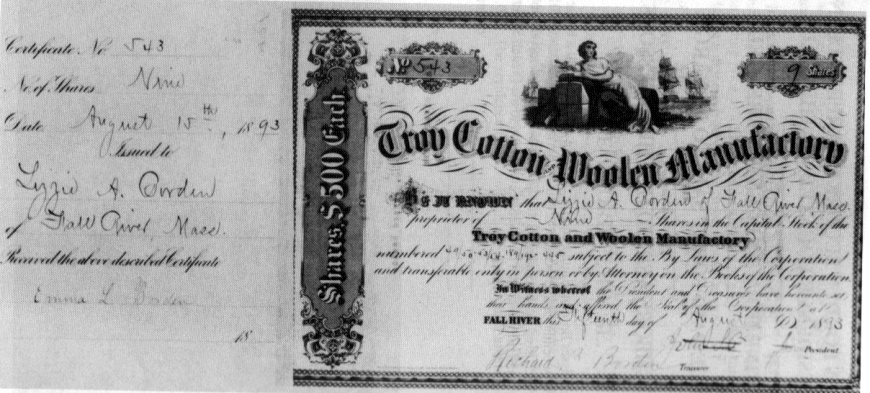 Certificate No 543
No. of Shares Nine
Date August 15th, 1893
Issued to
Lizzie A. Borden
of Fall River, Mass.
Received the above described Certificate
Emma L. Borden
18
Shares, $500 Each
No 543
9 Shares
Troy Cotton and Woolen Manufactory
BE IT KNOWN that Lizzie A. Borden of Fall River Mass
proprietor of Nine Shares in the Capital Stock of the
Troy Cotton and Woolen Manufactory
numbered subject to the By Laws of the Corporation
and transferable only in person or by Attorney on the Books of the Corporation
In Witness whereof the President and Treasurer have hereunto set
their hands and affixed the Seal of the Corporation at
FALL RIVER this Fifteenth day of August AD 1893
President
Richard B Borden
Treasurer